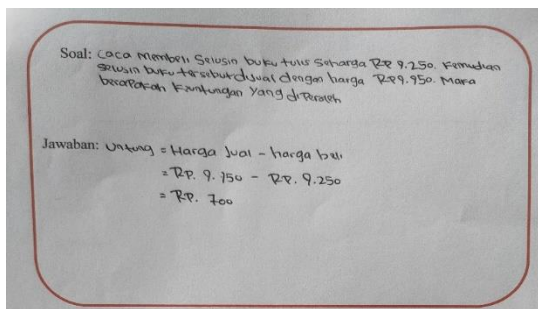 Soal: Caca membeli Selusin buku tulis Seharga RP 9.250. Kemudian
selusin buku tersebut dijual dengan harga RP9.950. Maka
berapakah kuntungan yang diperoleh
Jawaban: Untung = Harga Jual - harga beli
= RP. 9.950 - RP. 9.250
= RP. 700